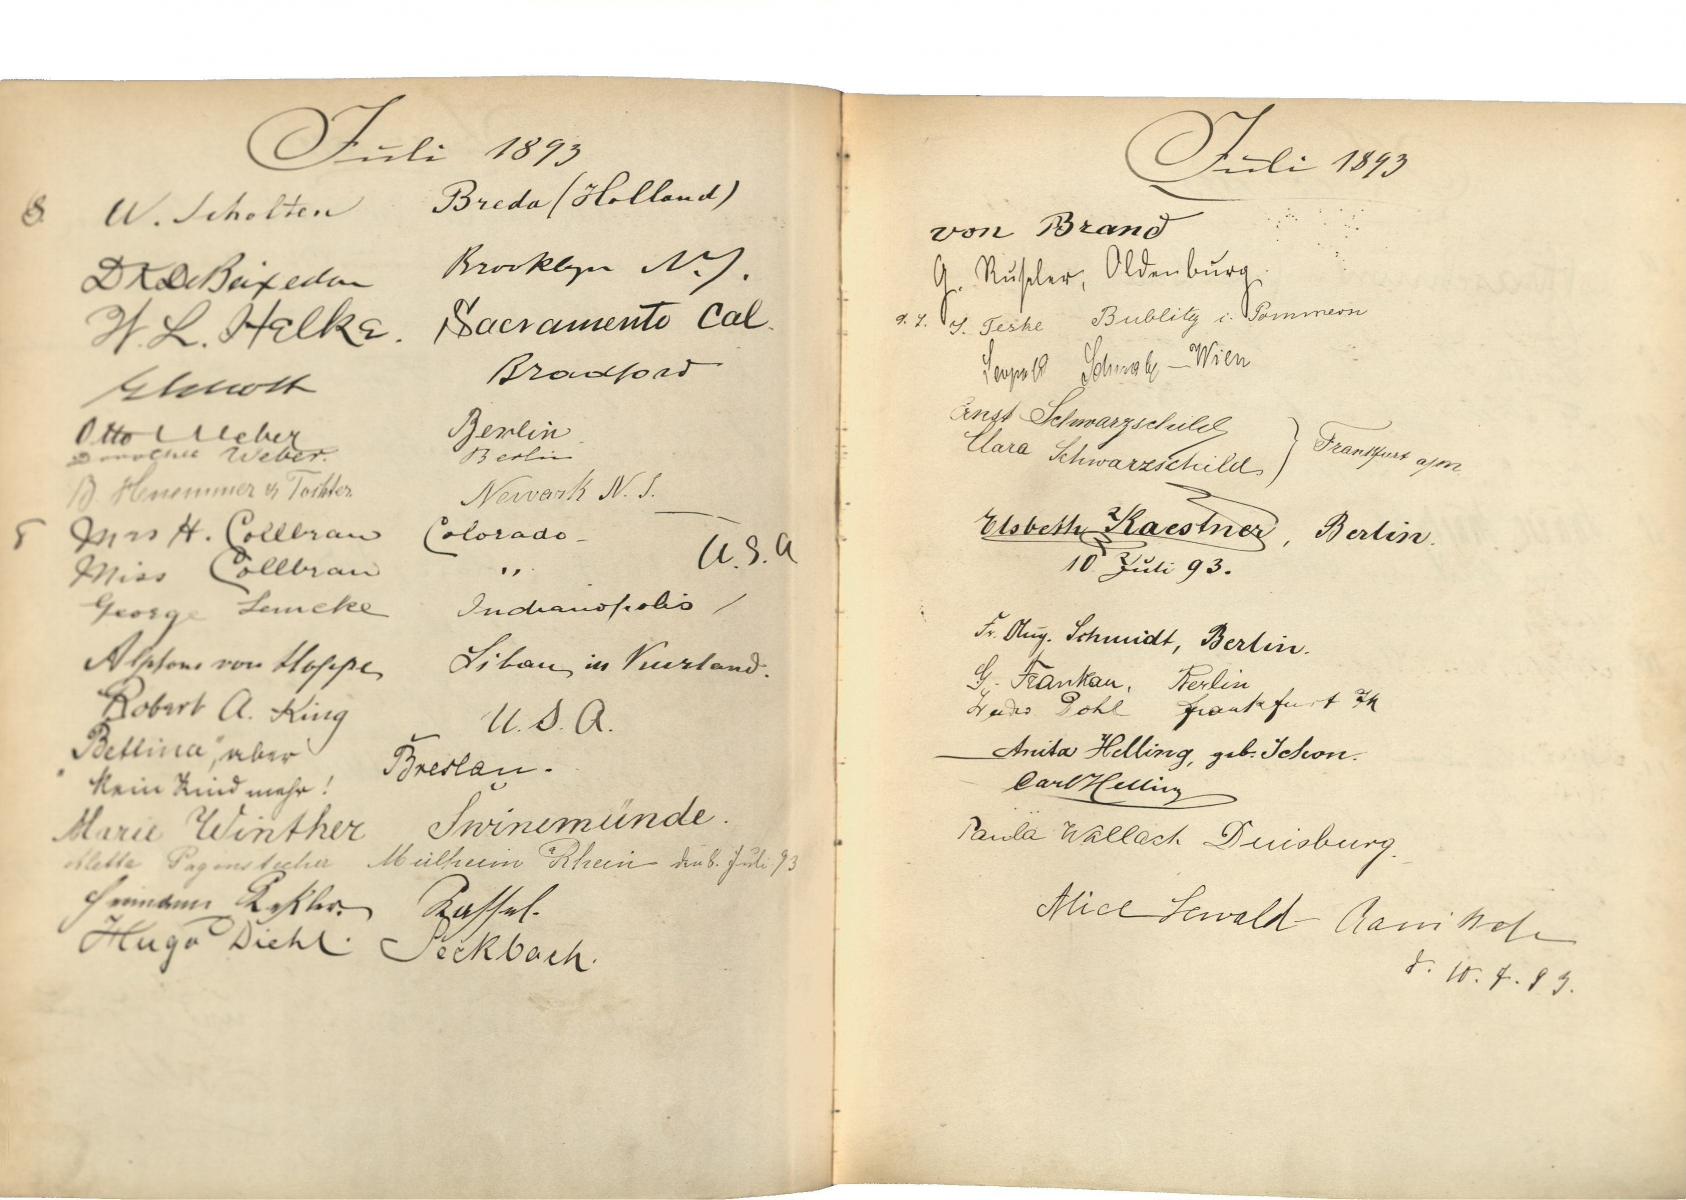 Juli 1893
8. W. Scholten Breda (Holland)
Brooklyn N.Y.
W. L. Helke. Sacramento Cal.
Bradford
Otto Weber Berlin
Dorothee Weber. Berlin
Tochter Newark N. J.
Mrs H. Collbran Colorado - U.S.A
Miss Collbran "
George Lemcke Indianopolis /
Alphons von Hoppe, Libau in Kurland.
Robert A. King U. S. A.
"Bettina", aber
kein Kind mehr! Breslau.
Marie Winther Swinemünde.
Pagenstecher Mülheim a Rhein den 8. Juli 93
Hermann Kassel.
Hugo Diehl. Seckbach.
Juli 1893
von Brand
G. Ruseler, Oldenburg.
Teske Bublitz i. Pommern
Leopold Schmalz - Wien
Ernst Schwarzschild
Clara Schwarzschild } Frankfurt a/M
Elsbeth Kaestner, Berlin.
10. Juli 93.
Fr. Aug. Schmidt, Berlin.
G. Frankau, Berlin
Pohl Frankfurt
Anita Helling, geb. Schon.
Carl Helling
Paula Wallach Duisburg.
Alice Lewald
d. 10. 7. 93.